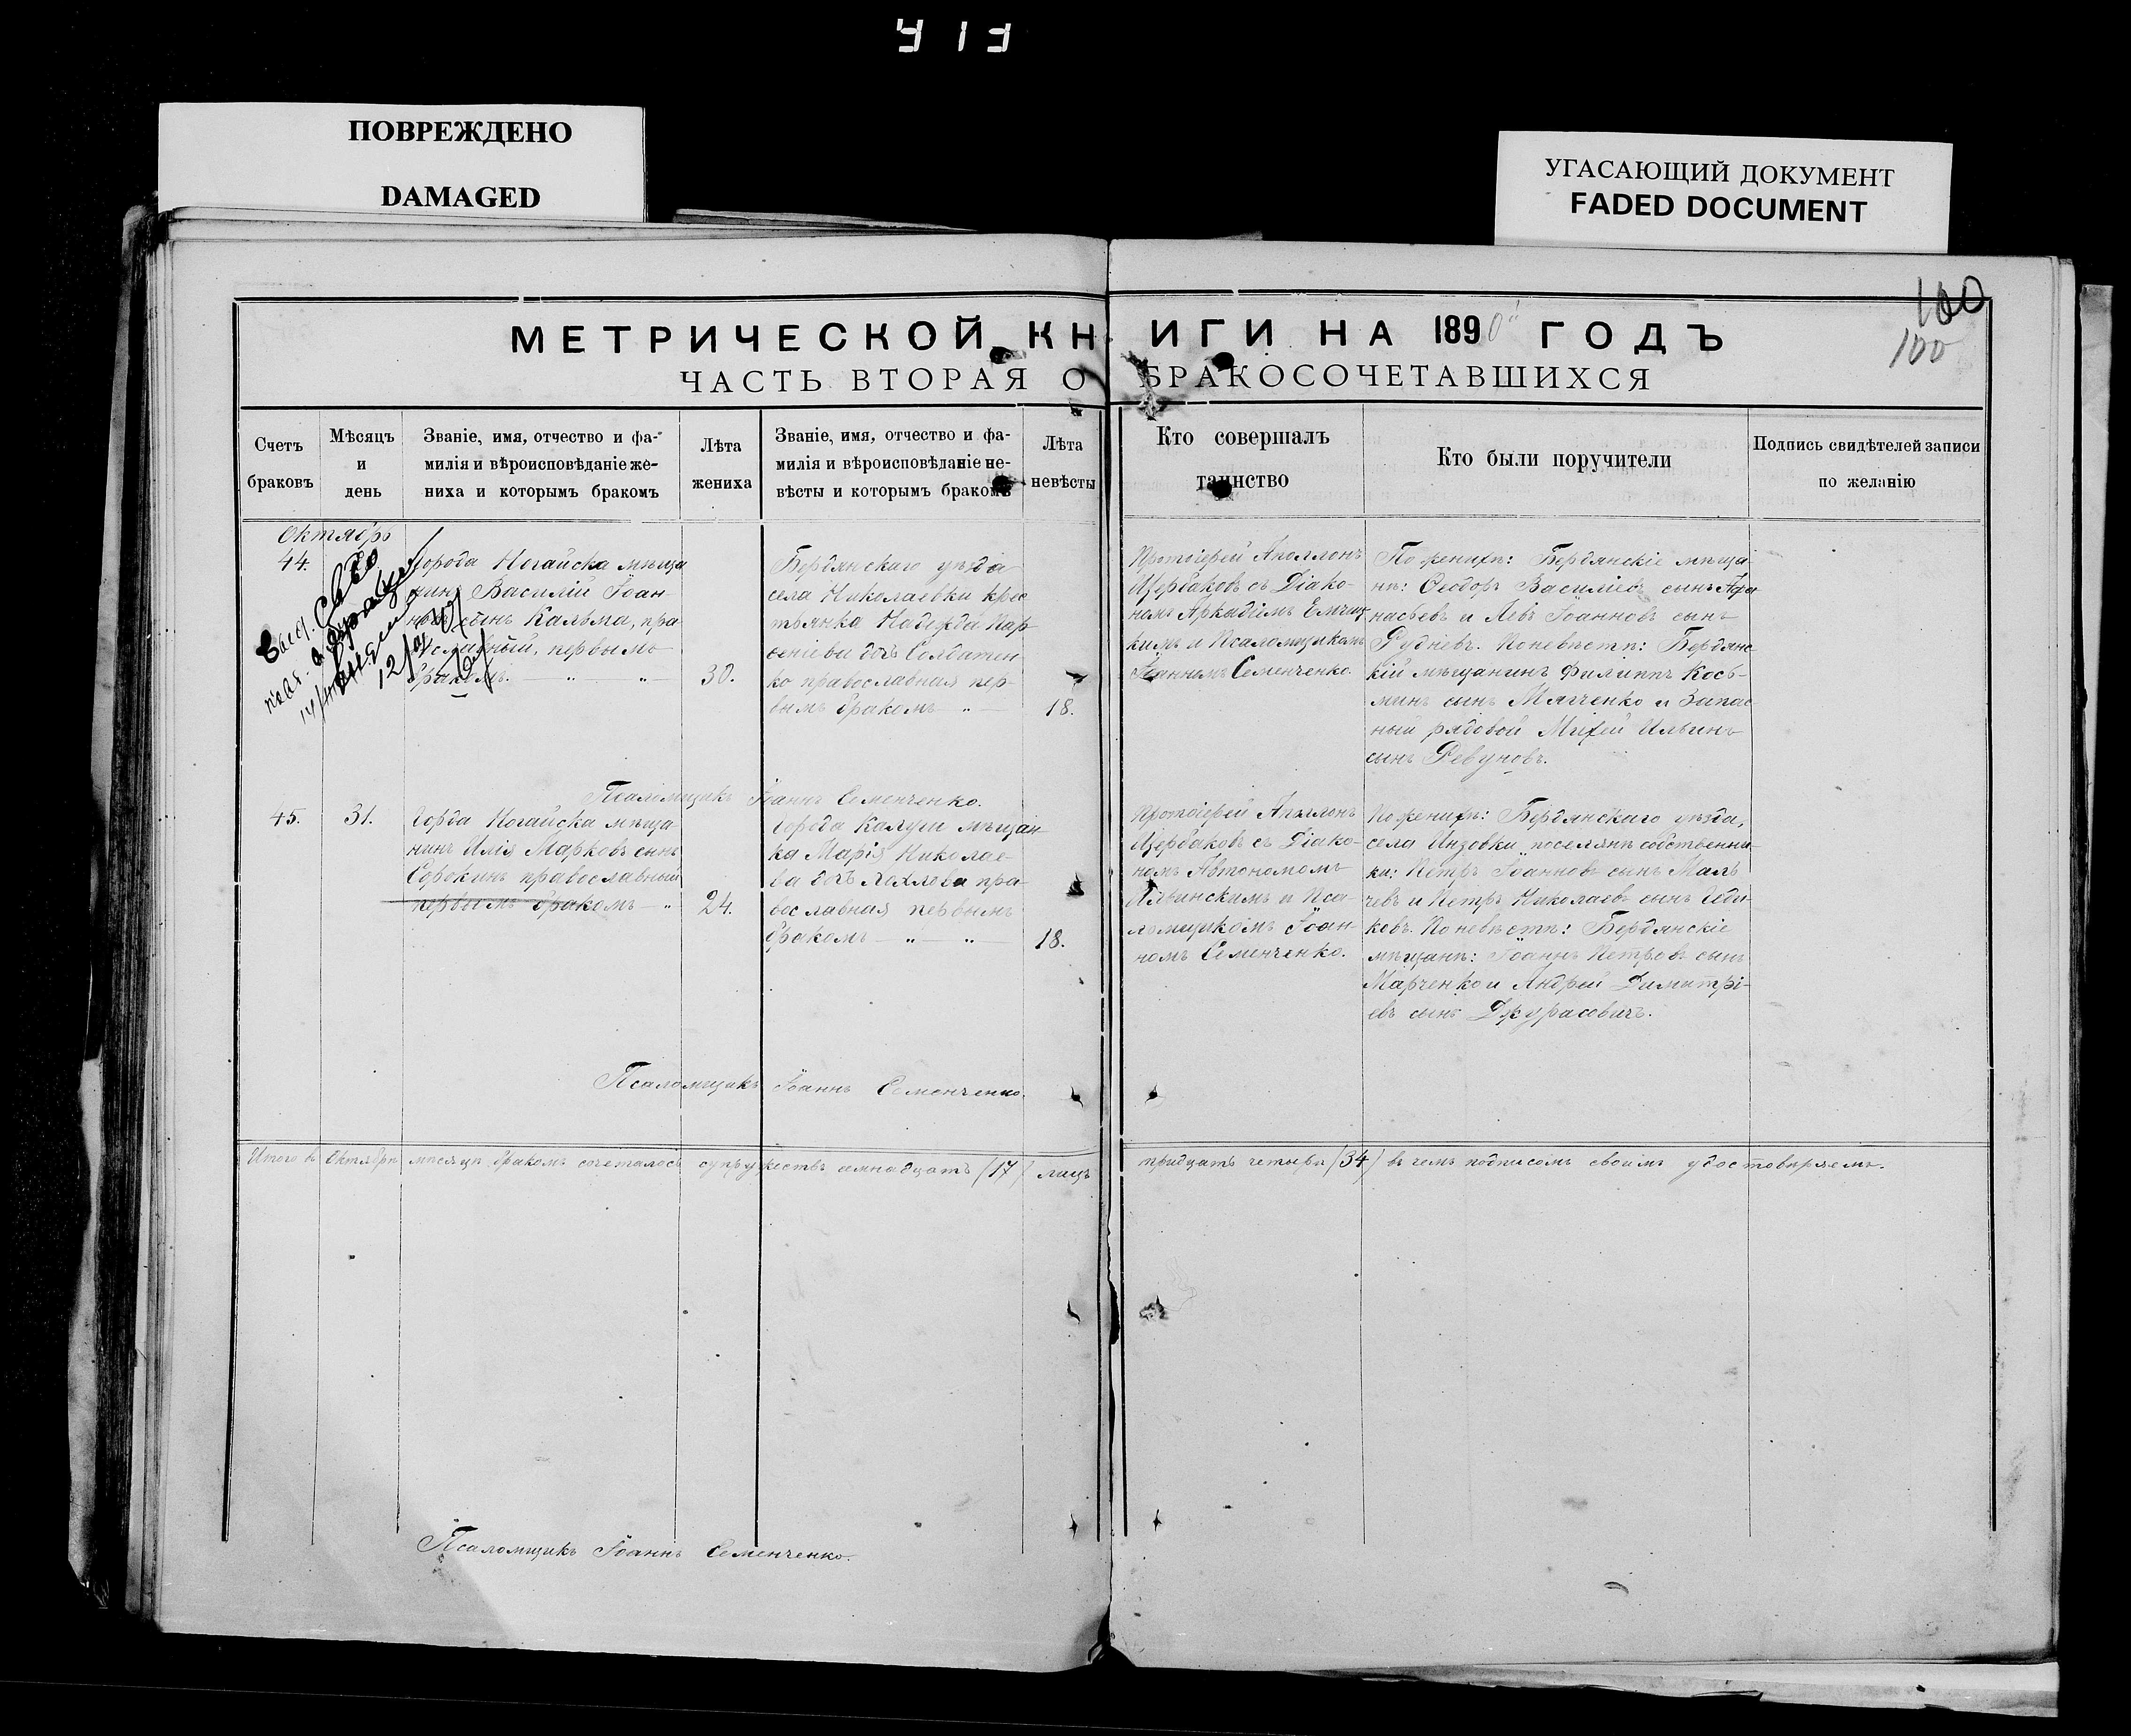 413
ПОВРЕЖДЕНО
DAMAGED
УГАСАЮЩИЙ ДОКУМЕНТ
FADED DOCUMENT
100
100
МЕТРИЧЕСКОЙ КНИГИ НА 1890 ГОДЪ
ЧАСТЬ ВТОРАЯ О БРАКОСОЧЕТАВШИХСЯ
Счетъ
браковъ
Мѣсяцъ
и
день
Званіе, имя, отчество и фа-
милія и вѣроисповѣданіе же-
ниха и которымъ бракомъ
Лѣта
жениха
Званіе, имя, отчество и фа-
милія и вѣроисповѣданіе не-
вѣсты и которымъ бракомъ
Лѣта
невѣсты
Кто совершалъ
таинство
Кто были поручители
Подпись свидѣтелей записи
по желанію
Октябрь
44.
города Ногайска мѣща
нинъ Василій Іоан-
новъ сынъ Кальма, пра
вославный, первымъ
бракомъ. — „ — „ —
30.
Бердянскаго уѣзда
села Николаевки крес
тьянка Надежда Пар
ѳеніева дочь Солдатен
ко православная пер-
вымъ бракомъ „ —
18.
Протоіерей Аполлонъ
Щербаковъ съ Діако-
номъ Аркадіемъ
кимъ и Псаломщикомъ
Іоанномъ Семенченко.
По женихѣ: Бердянскіе мѣща
не: Ѳеодоръ Василіевъ сынъ Аѳа
насьевъ и Левъ Іоанновъ сынъ
Рудневъ. По невѣстѣ: Бердянс
кій мѣщанинъ Филиппъ Кось-
минъ сынъ Мягченко и Запас
ный рядовой Михей Ильинъ
сынъ Ревуновъ.
Псаломщикъ Іоаннъ Семенченко.
45.
31.
Горда Ногайска мѣща
нинъ Илія Марковъ сынъ
Сорокинъ православный
первымъ бракомъ — „
24.
Города Калуги мѣщан
ка Марія Николае-
ва дочь пра-
вославная первымъ
бракомъ — „ — „
18.
Протоіерей Аполлонъ
Щербаковъ съ Діако-
номъ Автономомъ
и Пса-
ломщикомъ Іоан-
номъ Семенченко.
По женихѣ: Бердянскаго уѣзда,
села Инзовки поселяне собственни-
ки: Петръ Іоанновъ сынъ
и Петръ Николаевъ сынъ
ковъ. По невѣстѣ: Бердянскіе
мѣщане: Іоаннъ Петровъ сынъ
Марченко и Андрей Димитрі-
евъ сынъ Джурасовичъ.
Псаломщикъ Іоаннъ Семенченко.
Итого въ Октябрѣ мѣсяцѣ бракомъ сочеталось супружествъ семнадцать (17) лицъ тридцать четыре (34) въ чемъ подписомъ своимъ удостовѣряемъ.
Псаломщикъ Іоаннъ Семенченко.